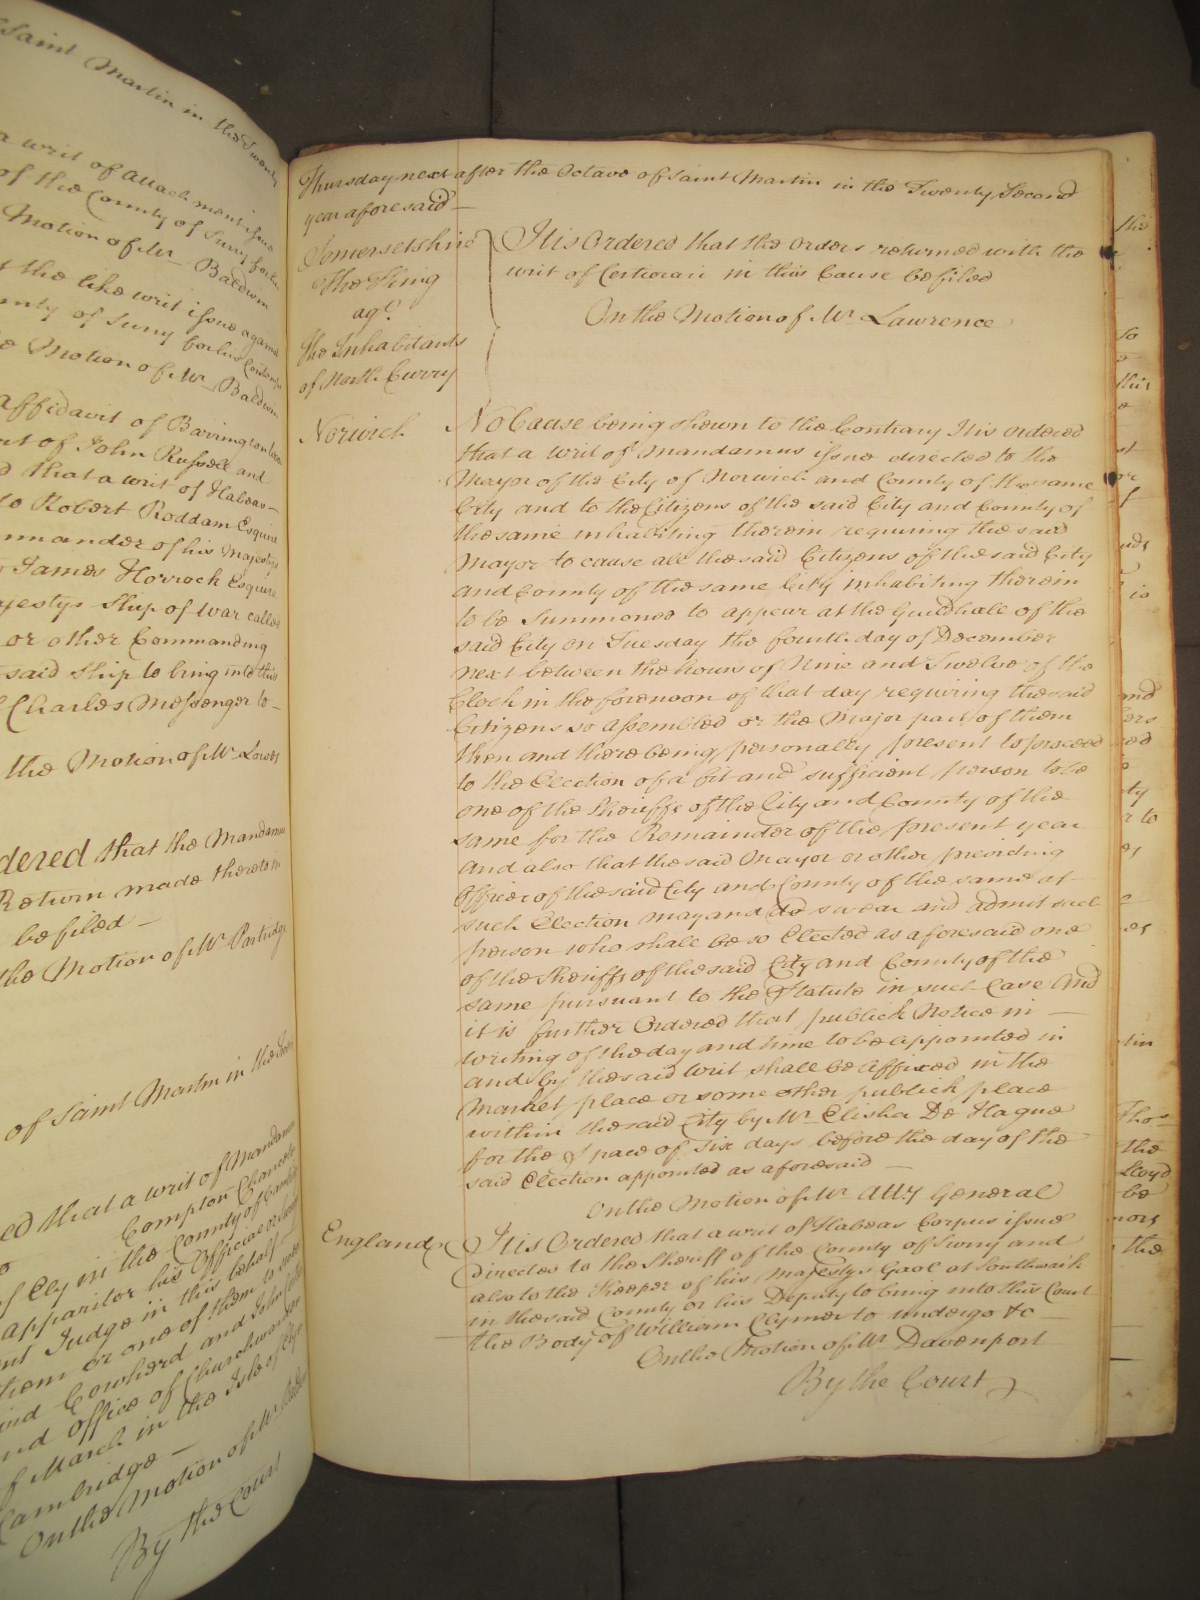 Saint Martin in the Twenty
a writ of Attachment issue
of the County of Surry for his
Motion of Mr Baldwin
the like writ issue against
County of Surry for his Contempt
Motion of Mr Baldwin
Affidavit of Barrington
of John Russell and
that a writ of Habeas
to Robert Roddam Esquire
Commander of his Majestys
James Horrock Esquire
Majestys Ship of War called
or other Commanding
said Ship to bring into this
Charles Messenger to
the Motion of Mr Lowes
dered that the Mandamus
Return made thereto in
be filed
the Motion of Mr Partridge
of Saint Martin in the
ed that a writ of Mandamus
Compton Chancellor
of Ely in the County of
apparitor his Official or
ent Judge in this behalf
them or one of them to
and Cowherd and John
and Office of Churchwarden
of March in the Isle of Ely
Cambridge
On the Motion of Mr
By the Court
Thursday next after the Octave of Saint Martin in the Twenty Second
year aforesaid
Somersetshire
The King
agt
The Inhabitants
of North Curry
It is Ordered that the Orders returned with the
writ of Certiorari in this Cause be filed
On the Motion of Mr Lawrence
Norwich
No Cause being shewn to the Contrary It is Ordered
that a writ of Mandamus issue directed to the
Mayor of the City of Norwich and County of the same
City and to the Citizens of the said City and County of
the same inhabiting therein requiring the said
Mayor to cause all the said Citizens of the said City
and County of the same City inhabiting therein
to be Summoned to appear at the Guildhall of the
said City on Tuesday the fourth day of December
next between the hours of Nine and Twelve of the
Clock in the forenoon of that day requiring the said
Citizens so Assembled or the Major part of them
then and there being personally present to proceed
to the Election of a fit and sufficient person to be
one of the Sheriffs of the City and County of the
same for the Remainder of the present year
And also that the said Mayor or other presiding
Officer of the said City and County of the same at
such Election may and do swear and admit such
person who shall be so Elected as aforesaid one
of the Sheriffs of the said City and County of the
same pursuant to the Statute in such Case And
it is further Ordered that publick Notice in
writing of the day and time to be appointed in
and by the said Writ shall be affixed in the
Market place or some other publick place
within the said City by Mr Elisha De Hague
for the Space of Six days before the day of the
said Election appointed as aforesaid
On the Motion of Mr Atty General
England
It is Ordered that a writ of Habeas Corpus issue
directed to the Sheriff of the County of Surry and
also to the Keeper of his Majestys Gaol at Southwark
in the said County or his Deputy to bring into this Court
the Body of William Clymer to undergo &c
On the Motion of Mr Davenport
By the Court